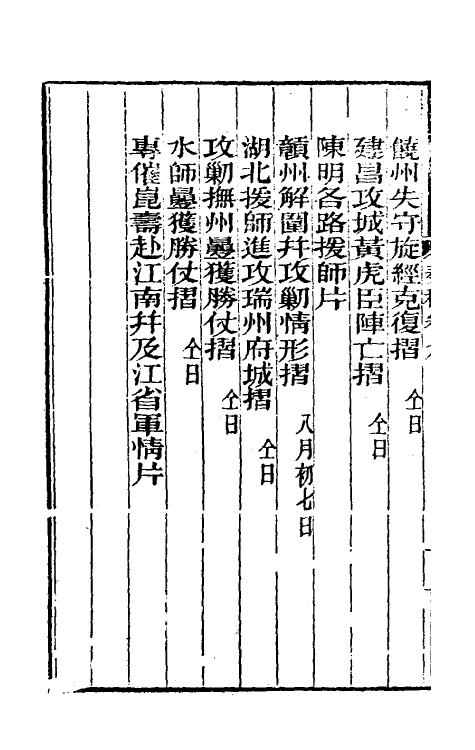 饒州失守旋經克復摺 仝日
建昌攻城黃虎臣陣亡摺 仝日
陳明各路援師片
贛州解圍幷攻剿情形摺 八月初七日
湖北援師進攻瑞州府城摺 仝日
攻剿撫州疊獲勝仗摺 仝日
水師疊獲勝仗摺 仝日
專催崑壽赴江南幷及江省軍情片